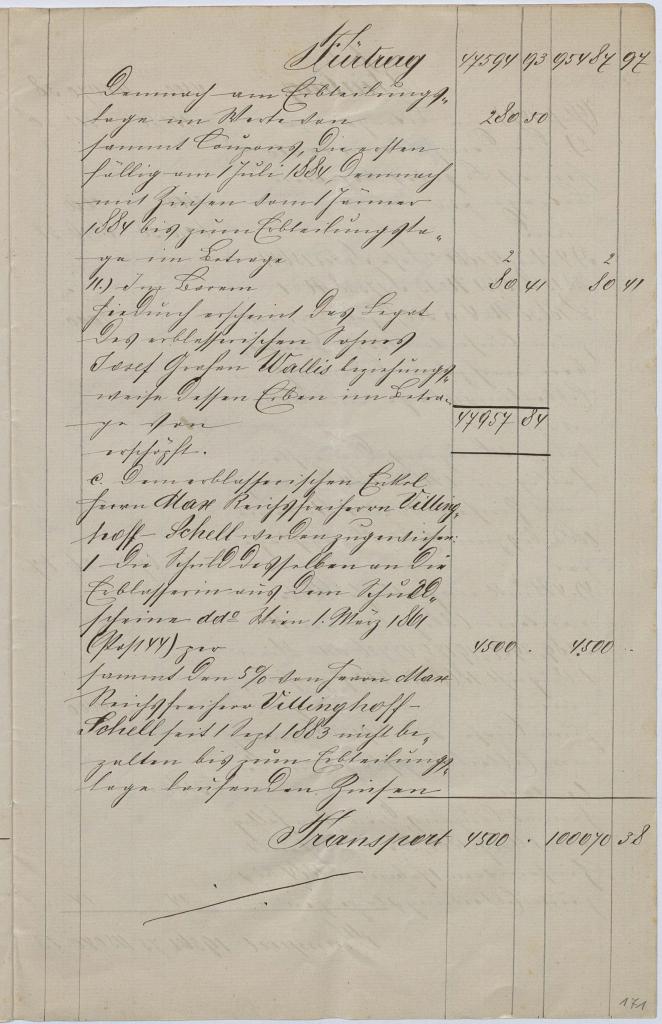 Fürtrag 47594 93 95487 97
Demnach am Erbteilungs-
tage im Werte von 280 50
sammt Coupons, die ersten
fällig am 1 Juli 1884, demnach
mit Zinsen vom 1 Jänner
1884 bis zum Erbteilungsta-
ge im Betrage 2 2
11.) Im Barem 80 41 80 41
hiedurch erscheint das Legat
des erblasserischen Sohnes
Josef Grafen Wallis beziehungs-
weise dessen Erben im Betra-
ge von 47957 84
erschöpft.
c. Dem erblasserischen Enkel
Herrn Max Reichsfreiherrn Vitting-
hoff-Schell werden zugewiesen:
1 Die Schuld desselben an die
Erblasserin aus dem Schuld-
scheine ddo Wien 1. März 1861
(Post 44) per 4500 . 4500 .
sammt den 5% von Herrn Max
Reichsfreiherr Vittinghoff-
Schell seit 1 Sept 1883 nicht be-
zalten bis zum Erbteilungs-
tage laufenden Zinsen
Transport 4500 . 100070 38
171